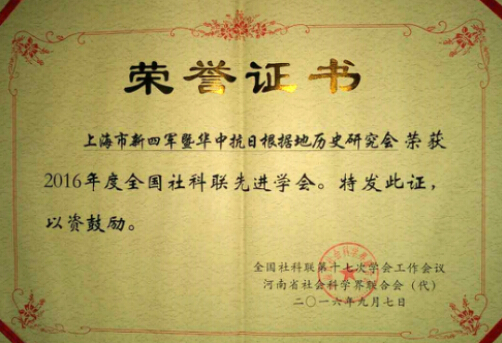 荣誉证书
上海市新四军暨华中抗日根据地历史研究会荣获
2016年度全国社科联先进学会。特发此证，
以资鼓励。
全国社科联第十七次学会工作会议
河南省社会科学界联合会（代）
二〇一六年九月七日